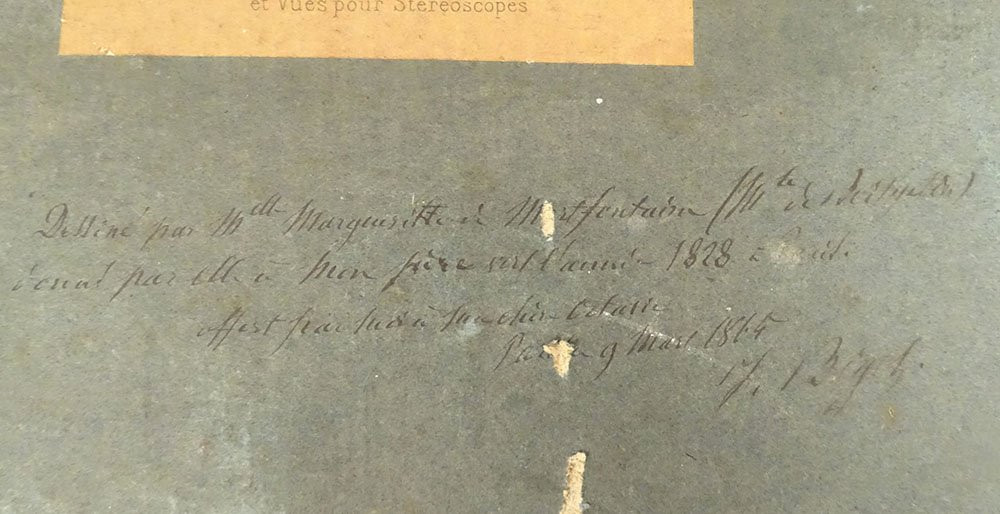 et Vues pour Stéréoscopes
Dessiné par Melle Margueritte de Mortfontaine (Mise de
donné par elle à mon père vers l'année 1828 à Paris.
offert par moi à ma chère Octavie
Paris le 9 Mars 1865